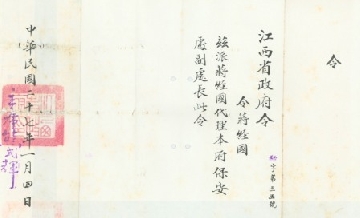 令
江西省政府令
令蔣經國
茲派蔣經國代理本府保安
處副處長此令
中華民國二十七年一月四日